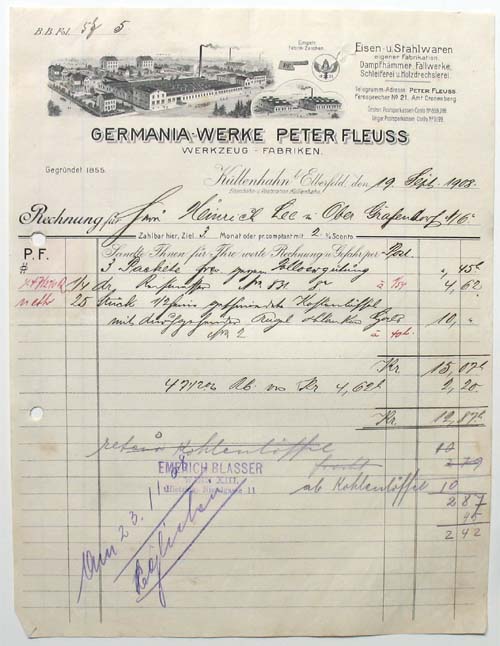 B.B. Fol. 58 5
Eingetr.
Fabrik-Zeichen.
Eisen- u. Stahlwaren
eigener Fabrikation.
Dampfhämmer, Fallwerke,
Schleiferei u. Holzdrechslerei.
Telegramm-Adresse: PETER FLEUSS
Fernsprecher No 21. Amt Cronenberg
GERMANIA-WERKE PETER FLEUSS
WERKZEUG-FABRIKEN.
Gegründet 1855.
Küllenhahn b/ Elberfeld, den 19. Sept. 1908.
Rechnung für Herrn Heinrich Lee in Ober Grafendorf N/Ö
Zahlbar hier, Ziel 3 Monat oder pr. comptant mit 2 % Sconto
P.F.
#
Sandte Ihnen für Ihre werte Rechnung u. Gefahr per Post.
3 Packete frco gegen Zollvergütung " 45
1/4 4,62
netto 25 Stück Kohlenlöffel
mit Kugel 10, "
No 2
Kr 15,07
Rb. Kr 4,62 2,20
Kr. 12,87
Kohlenlöffel 10
ab Kohlenlöffel 10
2 87
45
2 42
EMERICH BLASSER
WIEN XIII.
Am 23. 11. 08